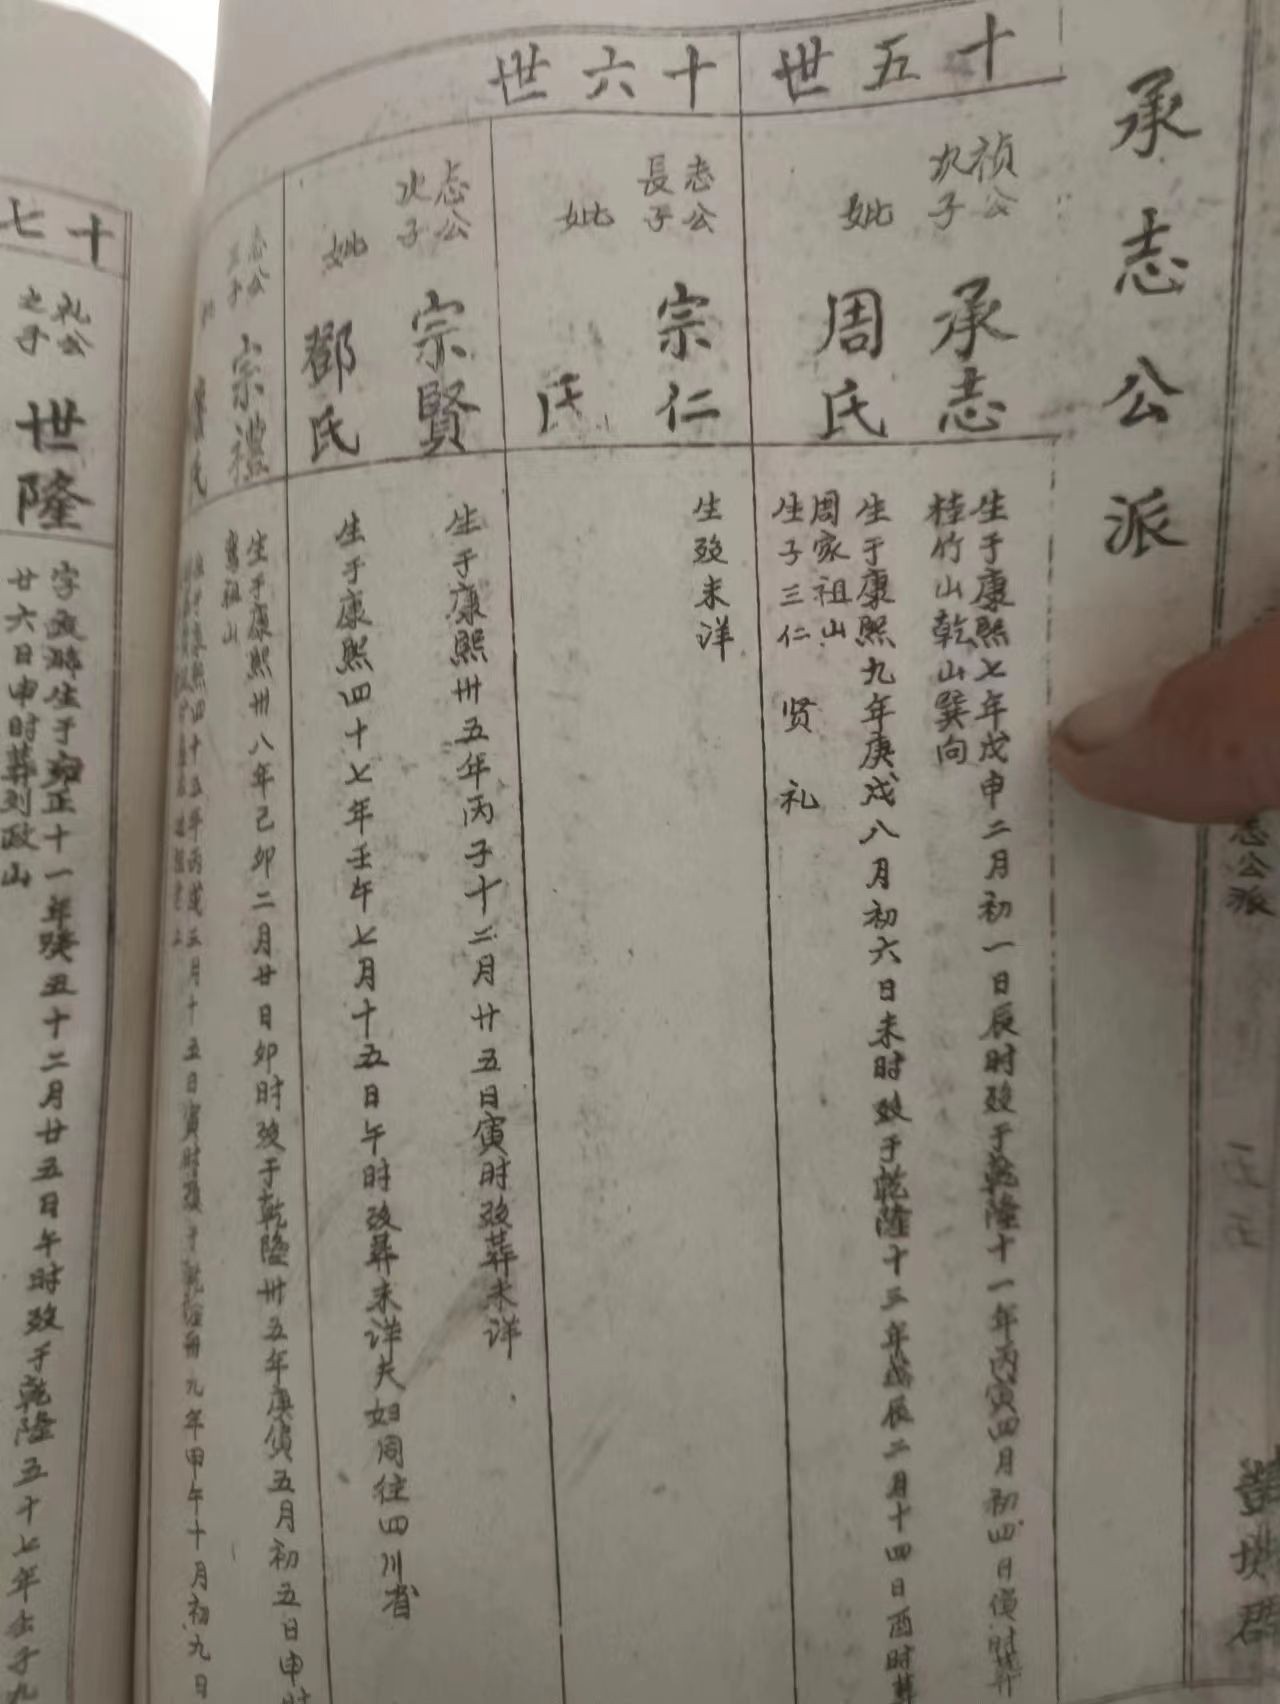 承志公派
志公派
十五世
祯公
次子
承志
妣
周氏
生于康熙七年戊申二月初一日辰时殁于乾隆十一年丙寅四月初四日寅时葬
桂竹山乾山巽向
生于康熙九年庚戌八月初六日未时殁于乾隆十三年戊辰二月十四日酉时葬
周家祖山
生子三仁 贤 礼
十六世
志公
長子
宗仁
妣
氏
生殁未洋
志公
次子
宗賢
妣
鄧氏
生于康熙卅五年丙子十二月廿五日寅时殁葬未洋
生于康熙四十七年壬午七月十五日午时殁葬未洋夫妇同往四川省
志公
三子
宗禮
氏
生于康熙卅八年己卯二月廿日卯时殁于乾隆卅五年庚寅五月初五日申时
祖山
康熙四十五年丙戌三月十五日寅时殁于乾隆卅九年甲午十月初九日
十七
礼公
之子
世隆
字 生于雍正十一年癸丑十二月廿五日午时殁于乾隆五十七年壬子九
廿六日申时葬刘政山